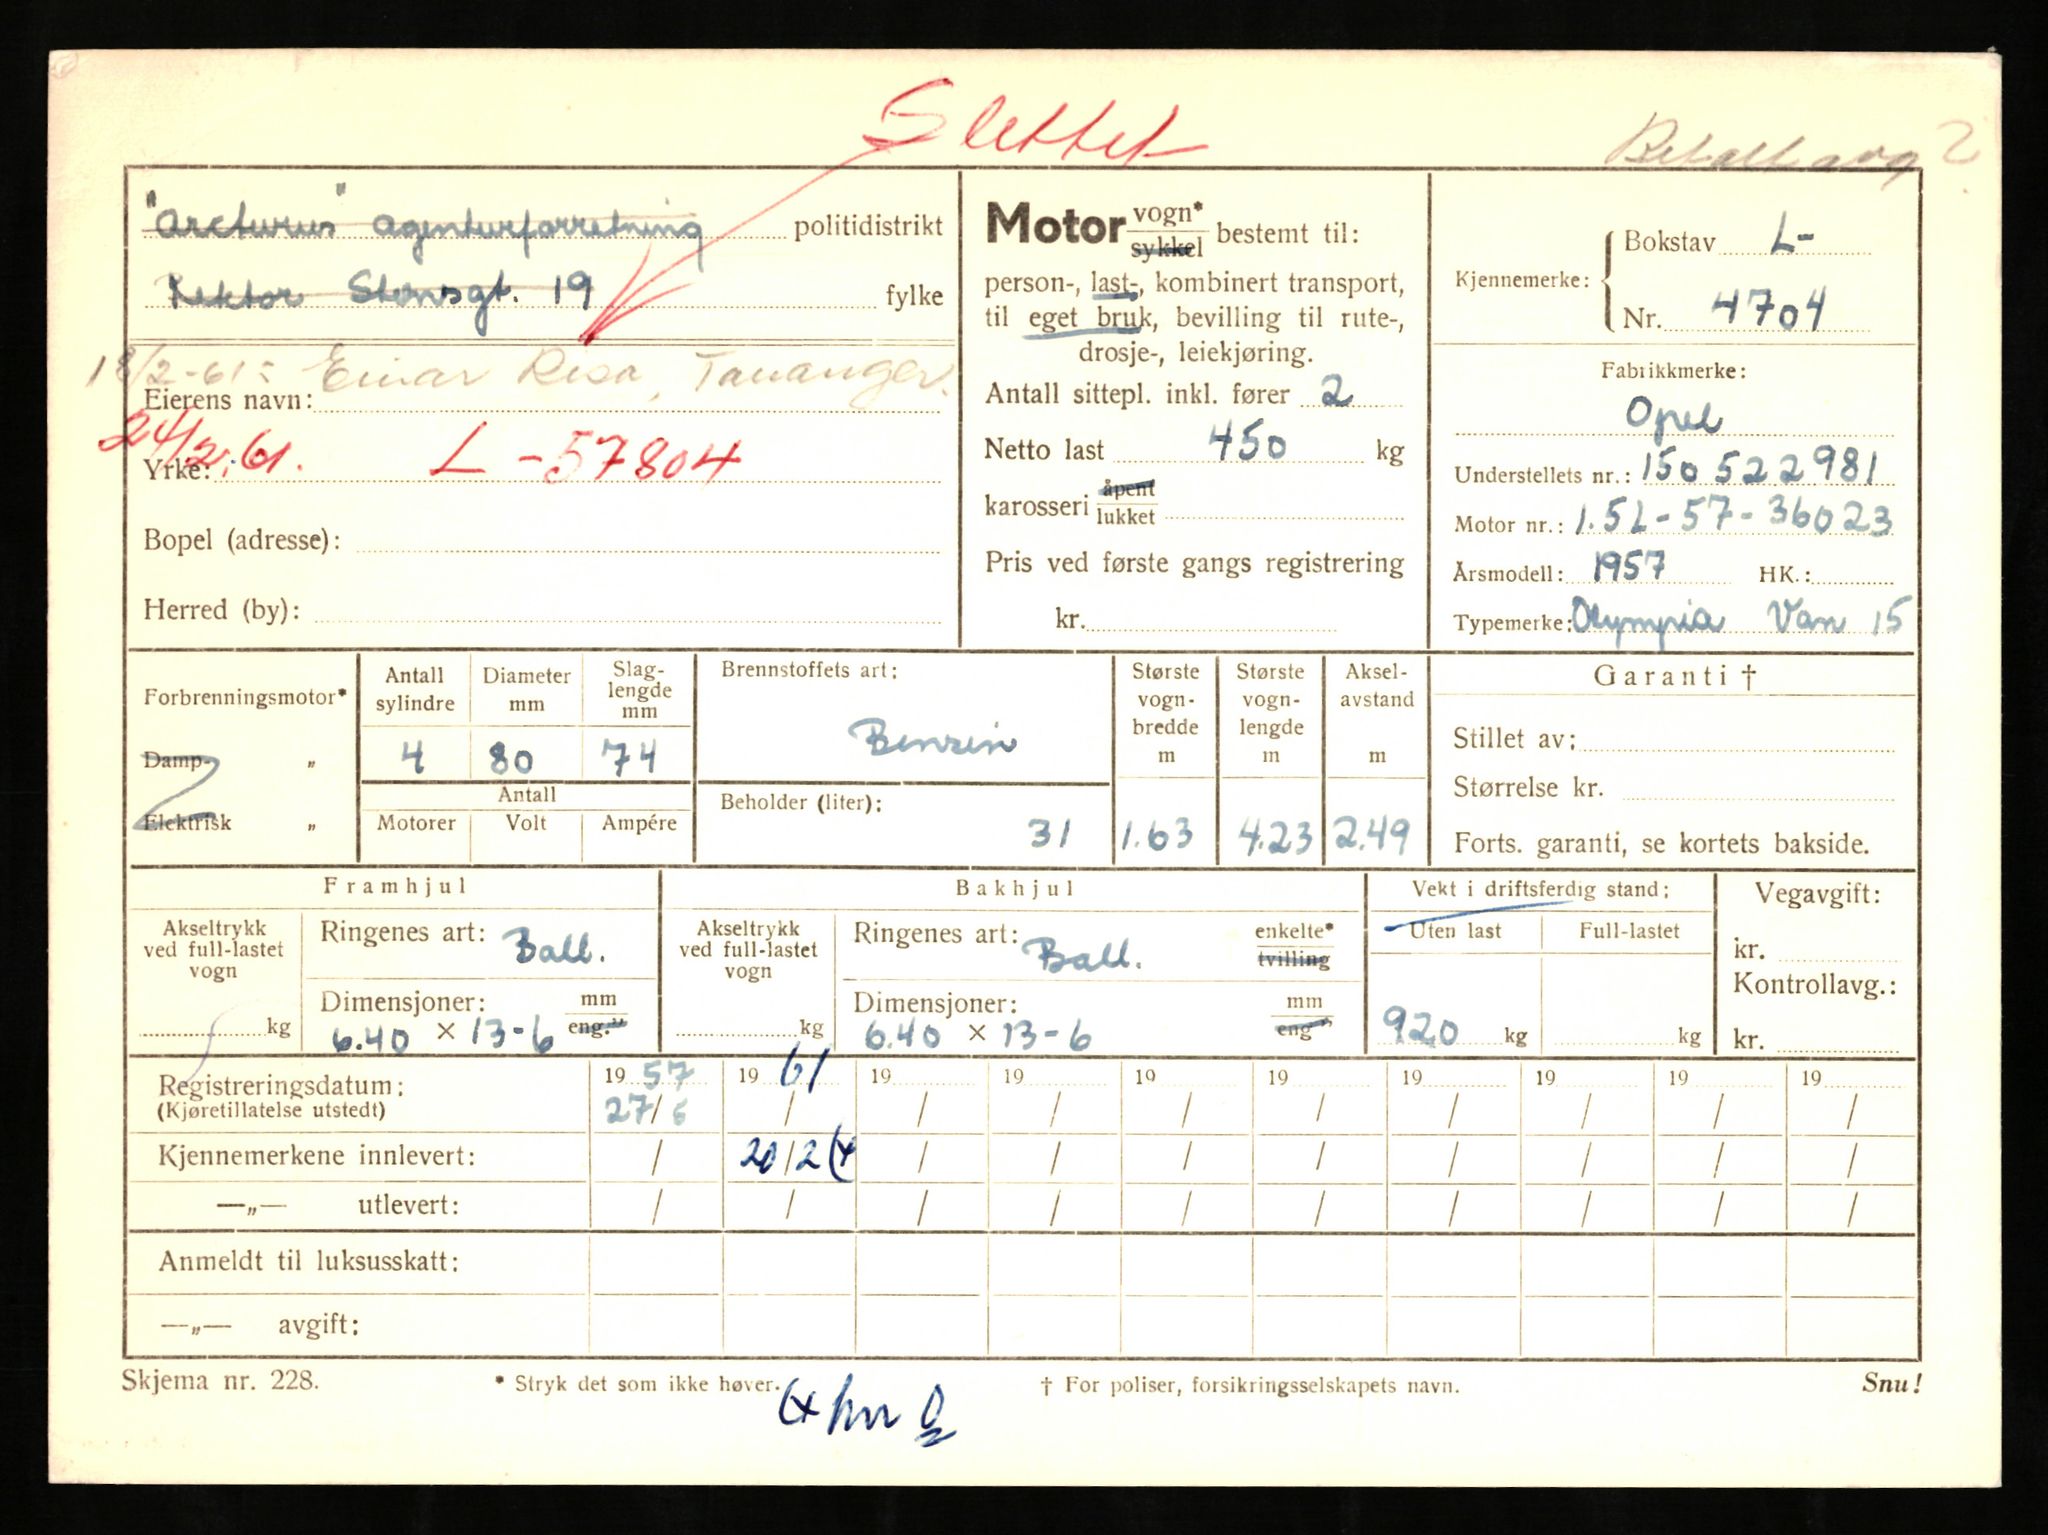 Slettet
Betalt avg 2
"Arcturus" Agenturforretning politidistrikt
Rektor Stensgt. 19 fylke
18/2-61: Einar Risa, Tananger.
Eierens navn:
24/2.61. L-57804
Yrke:
Bopel (adresse):
Herred (by):
Motor vogn* sykkel bestemt til:
person-, last-, kombinert transport,
til eget bruk, bevilling til rute-,
drosje-, leiekjøring.
Antall sittepl. inkl. fører 2
Netto last 450 kg
karosseri åpent lukket
Pris ved første gangs registrering
kr.
Kjennemerke: Bokstav L-
Nr. 4704
Fabrikkmerke:
Opel
Understellets nr.: 150522981
Motor nr.: 1.5L-57-36023
Årsmodell: 1957 HK.:
Typemerke: Olympia Van 15
Forbrenningsmotor*
Damp- „
Elektrisk „
Antall sylindre Diameter mm Slag-lengde mm
4 80 74
Antall
Motorer Volt Ampére
Brennstoffets art:
Benzin
Beholder (liter):
31
Største vogn-bredde m
1.63
Største vogn-lengde m
4.23
Aksel-avstand m
2.49
Garanti †
Stillet av:
Størrelse kr.
Forts. garanti, se kortets bakside.
Framhjul
Akseltrykk ved full-lastet vogn
kg
Ringenes art: Ball.
Dimensjoner: mm eng."
6.40 × 13-6
Bakhjul
Akseltrykk ved full-lastet vogn
kg
Ringenes art: Ball. enkelte* tvilling
Dimensjoner: mm eng"
6.40 × 13-6
Vekt i driftsferdig stand:
Uten last Full-lastet
920 kg kg
Vegavgift:
kr.
Kontrollavg.:
kr.
Registreringsdatum: 19 57 19 61 19 19 19 19 19 19 19 19
(Kjøretillatelse utstedt) 27/6 / / / / / / / / /
Kjennemerkene innlevert: / 20/2 (x / / / / / / / /
—„— utlevert: / / / / / / / / / /
Anmeldt til luksusskatt:
—„— avgift:
Skjema nr. 228. * Stryk det som ikke høver. † For poliser, forsikringsselskapets navn. Snu!
(x